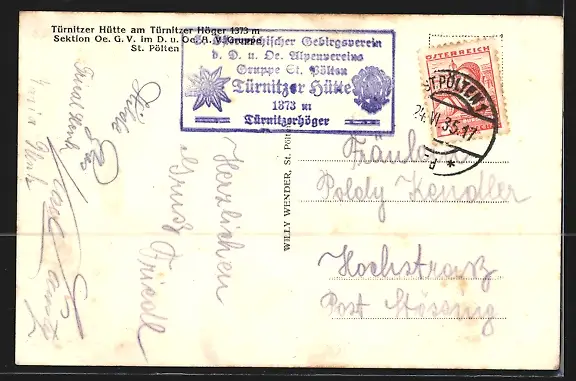 Türnitzer Hütte am Türnitzer Höger 1373 m
Sektion Oe. G. V. im D. u. Oe. A. V. Gruppe
St. Pölten
Gebirgsverein
d. D. u. Oe. Alpenvereins
Gruppe St. Pölten
Türnitzer Hütte
1873 m
Türnitzerhöger
ÖSTERREICH
ST. PÖLTEN
24.VI.35.17
Herzlichen
Gruß Friedl
WILLY WENDER, St. Pölten
Fräulein
Poldy Kandler
Hochstraß
Post Stössing